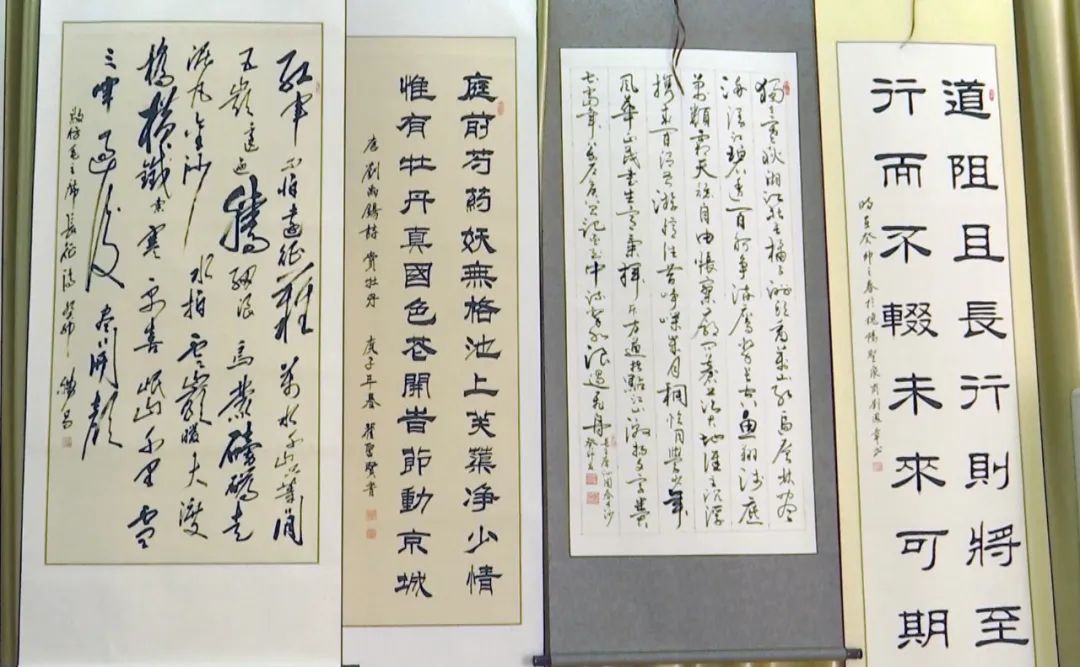 紅軍不怕遠征難萬水千山只等閒
五嶺逶迤騰細浪烏蒙磅礴走
泥丸金沙水拍雲崖暖大渡
橋橫鐵索寒更喜岷山千里雪
三軍過後盡開顏
敬仿毛主席長征詩 癸卯
庭前芍药妖無格池上芙蕖净少情
惟有牡丹真國色花開時節動京城
唐劉禹錫詩賞牡丹 庚子年春 翟聖賢書
獨立寒秋湘江北去橘子洲頭看萬山紅遍層林盡
染漫江碧透百舸爭流鷹擊長空魚翔淺底
萬類霜天競自由悵寥廓問蒼茫大地誰主沉浮
攜來百侶曾游憶往昔崢嶸歲月稠恰同學少年
風華正茂書生意氣揮斥方遒指點江山激揚文字糞
土當年萬戶侯曾記否到中流擊水浪遏飛舟
沁園春長沙
癸卯
道阻且長行則將至
行而不輟未來可期
時在癸卯之春於